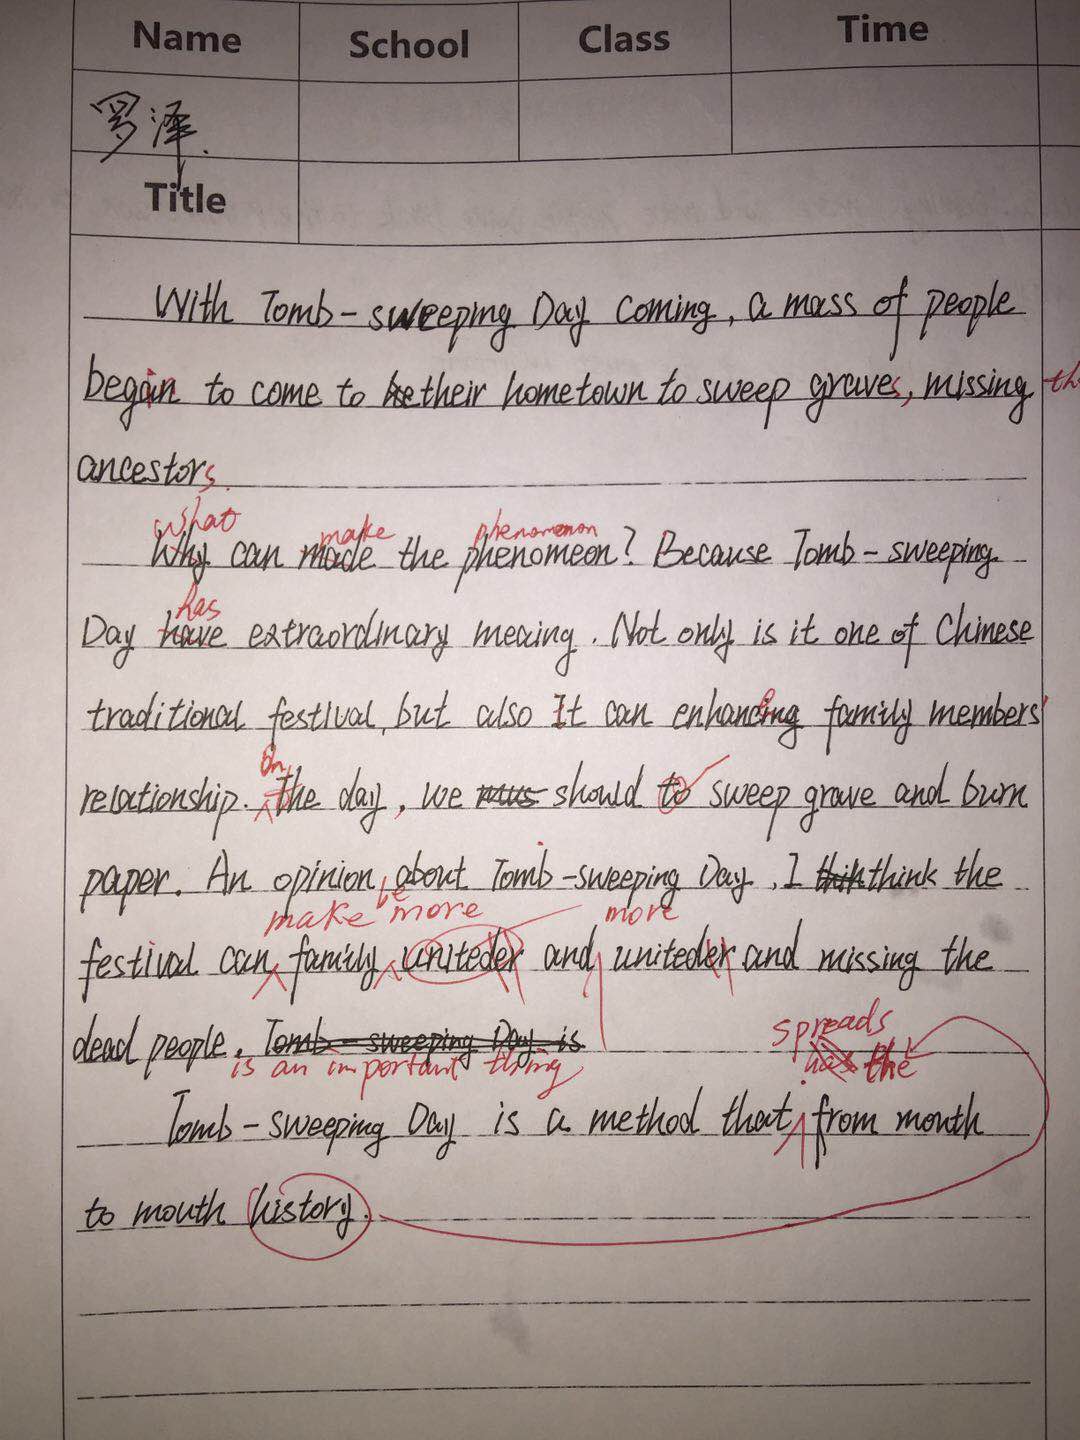 Name School Class Time
罗泽.
Title
With Tomb-sweeping Day coming, a mass of people
begin to come to their hometown to sweep graves, missing th
ancestors.
What make phenomenon
Why can made the phenomeon? Because Tomb-sweeping
has
Day have extraordinary meaing. Not only is it one of Chinese
traditional festival, but also It can enhancing family members'
On
relationship. The day, we mus should to sweep grave and burn
paper. An opinion about Tomb-sweeping Day, I think the
make be more more
festival can family uniteder and uniteder and missing the
dead people. Tomb-sweeping Day is
is an important thing spreads
has the
Tomb-sweeping Day is a method that from mouth
to mouth history.